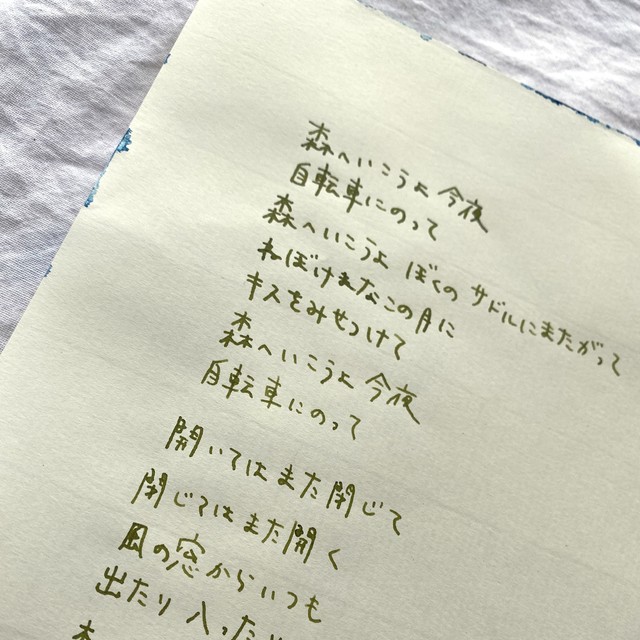 森へいこうよ 今夜
自転車にのって
森へいこうよ ぼくの サドルにまたがって
ねぼけまなこの月に
キスをみせつけて
森へいこうよ 今夜
自転車にのって
開いてはまた閉じて
閉じてはまた開く
風の窓からいつも
出たり入ったり
森